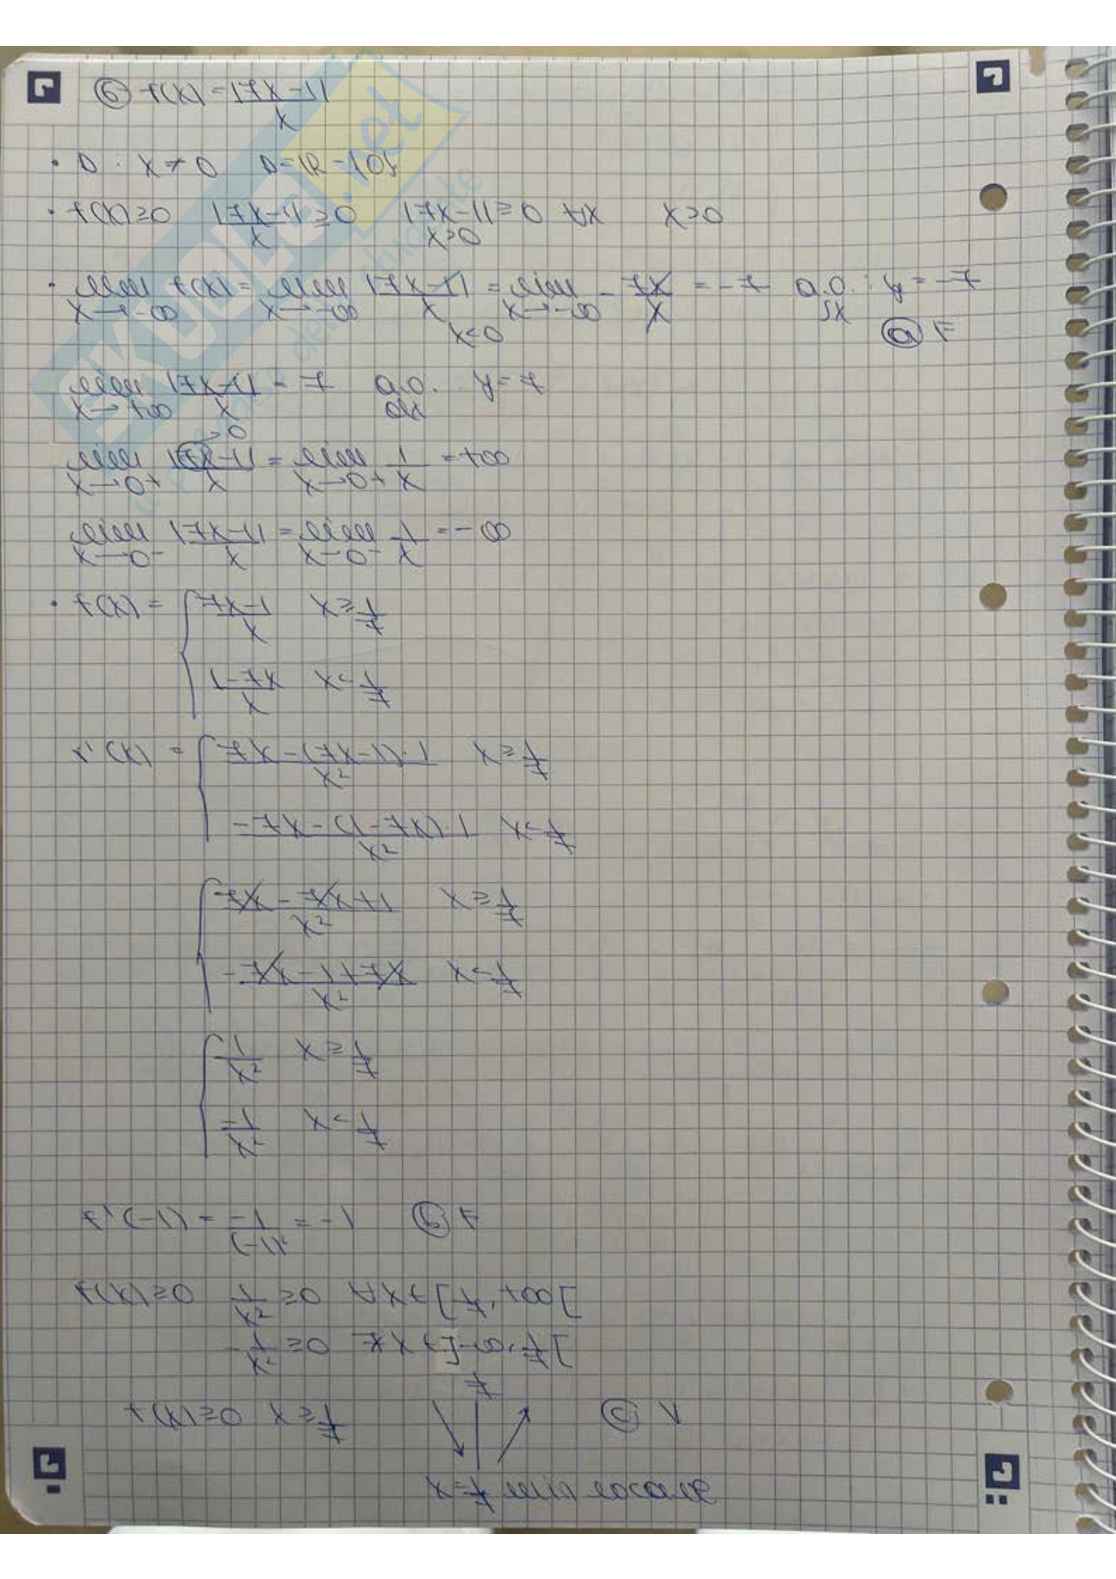 ⑥ f(x) = |7x-1|/x
• D: x≠0 D=ℝ-{0}
• f(x)≥0 |7x-1|/x ≥0 |7x-1|≥0 ∀x x>0
x>0
• lim x→-∞ f(x) = lim x→-∞ |7x-1|/x = lim x→-∞ -7x/x = -7 a.o. sx y=-7
x<0 ⓐ F
lim x→+∞ |7x-1|/x = 7 a.o. dx y=7
lim x→0+ |7x-1|/x = lim x→0+ 1/x = +∞
lim x→0- |7x-1|/x = lim x→0- 1/x = -∞
• f(x) = { (7x-1)/x x≥1/7
(1-7x)/x x<1/7
f'(x) = { (7x-(7x-1)·1)/x² x≥1/7
(-7x-(1-7x)·1)/x² x<1/7
{ (7x-7x+1)/x² x≥1/7
(-7x-1+7x)/x² x<1/7
{ 1/x² x≥1/7
-1/x² x<1/7
f'(-1) = -1/(-1)² = -1 ⓑ F
f(x)≥0 1/x² ≥0 ∀x∈[1/7,+∞[
-1/x² ≥0 ∄x∈]-∞,1/7[
f(x)≥0 x≥1/7 ⓒ V
x=1/7 min locale